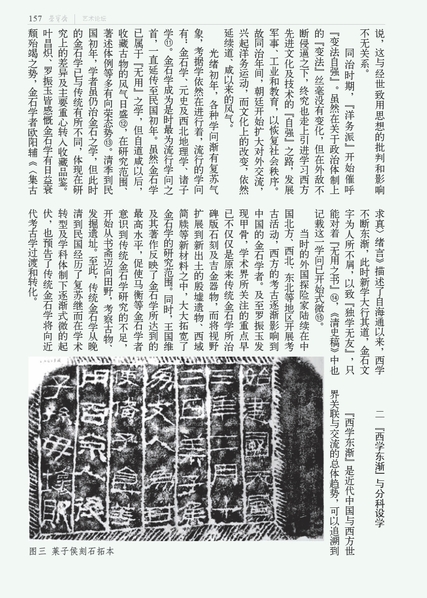 157
艺术论坛
说，这与经世致用思想的批判和影响
不无关系。
同治时期，『洋务派』开始催呼
『变法自强』。虽然在关于政治体制上
的『变法』丝毫没有变化，但在外敌不
断侵逼之下，终究也走上引进学习西方
先进文化及技术的『自强』之路，发展
军事、工业和教育，以恢复社会秩序。
故同治年间，朝廷开始扩大对外交流，
兴起洋务运动，而文化上的改变，依然
延续道、咸以来的风气。
光绪初年，各种学问渐有复苏气
象，考据学依然在进行着，流行的学问
有：金石学、元史及西北地理学、诸子
学⑪。金石学成为是时最为流行学问之
首，一直延传至民国初年。虽然『金石学
已属于『无用』之学，但自道咸以后，
收藏古物的风气日盛⑫，在研究范围、
著述体例等多有向荣态势⑬。清季与民
国初年，学者虽仍治金石之学，但此时
的金石学已与传统有所不同，体现在研
究上的差异及主要重心转入收藏品鉴。
叶昌炽、罗振玉皆感慨金石学有日益衰
颓殆竭之势，金石学者欧阳辅《〈集古
求真〉绪言》描述了自海通以来，西学
不断东渐，此时新学大行其道，金石文
字为人所不屑，以致『独学无友』，只
能对着『无用之书』⑭，《清史稿》中也
记载这一学问已开始式微⑮。
当时的外国探险家陆续在中
国北方、西北、东北等地区开展考
古活动，西方的考古逐渐影响到
中国的金石学者。及至罗振玉发
现甲骨，学术界所关注的重点早
已不仅仅是原来传统金石学所治
碑版石刻及吉金器物，而将视野
扩展到新出土的殷墟遗物、西域
简牍等新材料之中，大大拓宽了
金石学的研究范围。同时，王国维
及其著作反映了金石学所达到的
最高水平，促使马衡等金石学者
意识到传统金石学研究的不足，
开始从书斋迈向田野，考察古物、
发掘遗址。至此，传统金石学从晚
清到民国经历了复苏继而在学术
转型及学科体制下逐渐式微的起
伏，也预告了传统金石学将向近
代考古学过渡和转化。
二 『西学东渐』与分科设学
『西学东渐』是近代中国与西方世
界关联与交流的总体趋势，可以追溯到
图三 莱子侯刻石拓本